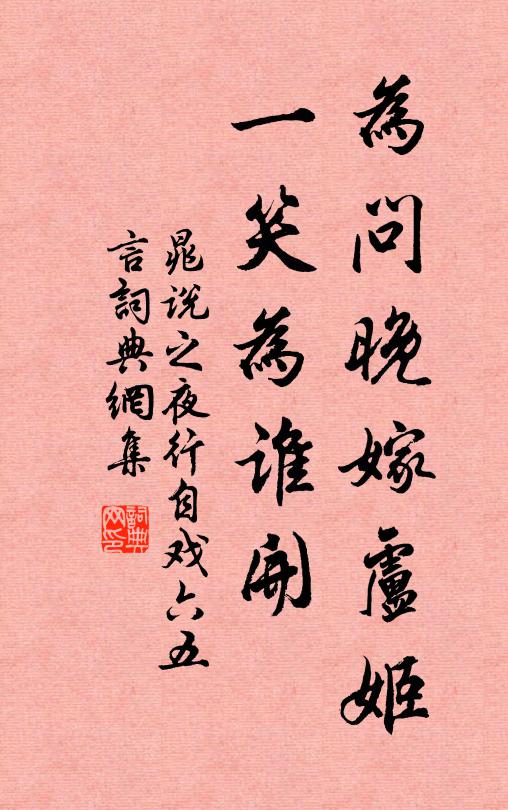 為問晚嫁盧姬
一笑為誰開
晁说之夜行自戏六五
言詞典網集
詞典
网印